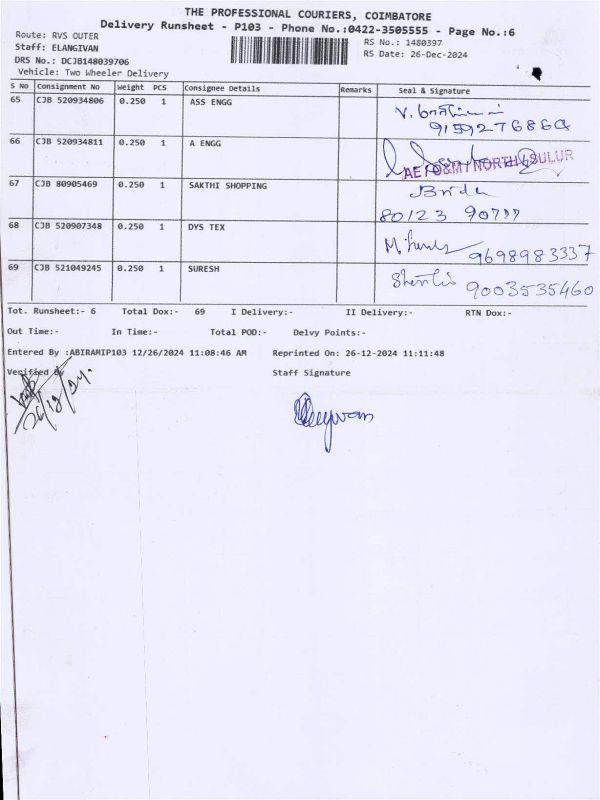 THE PROFESSIONAL COURIERS, COIMBATORE
Delivery Runsheet - P103 - Phone No.:0422-3505555 - Page No.:6
Route: RVS OUTER
RS No.: 1480397
Staff: ELANGIVAN
RS Date: 26-Dec-2024
DRS No.: DCJB148039706
Vehicle: Two Wheeler Delivery
S No Consignment No Weight PCS Consignee Details Remarks Seal & Signature
65 CJB 520934806 0.250 1 ASS ENGG
66 CJB 520934811 0.250 1 A ENGG
67 CJB 80905469 0.250 1 SAKTHI SHOPPING
80123 90777
68 CJB 520907348 0.250 1 DYS TEX 9698983337
69 CJB 521049245 0.250 1 SURESH 9003535460
Tot. Runsheet:- 6 Total Dox:- 69 I Delivery:- II Delivery:- RTN Dox:-
Out Time:- In Time:- Total POD:- Delvy Points:-
Entered By :ABIRAMIP103 12/26/2024 11:08:46 AM Reprinted On: 26-12-2024 11:11:48
Verified By Staff Signature
26/12/24.